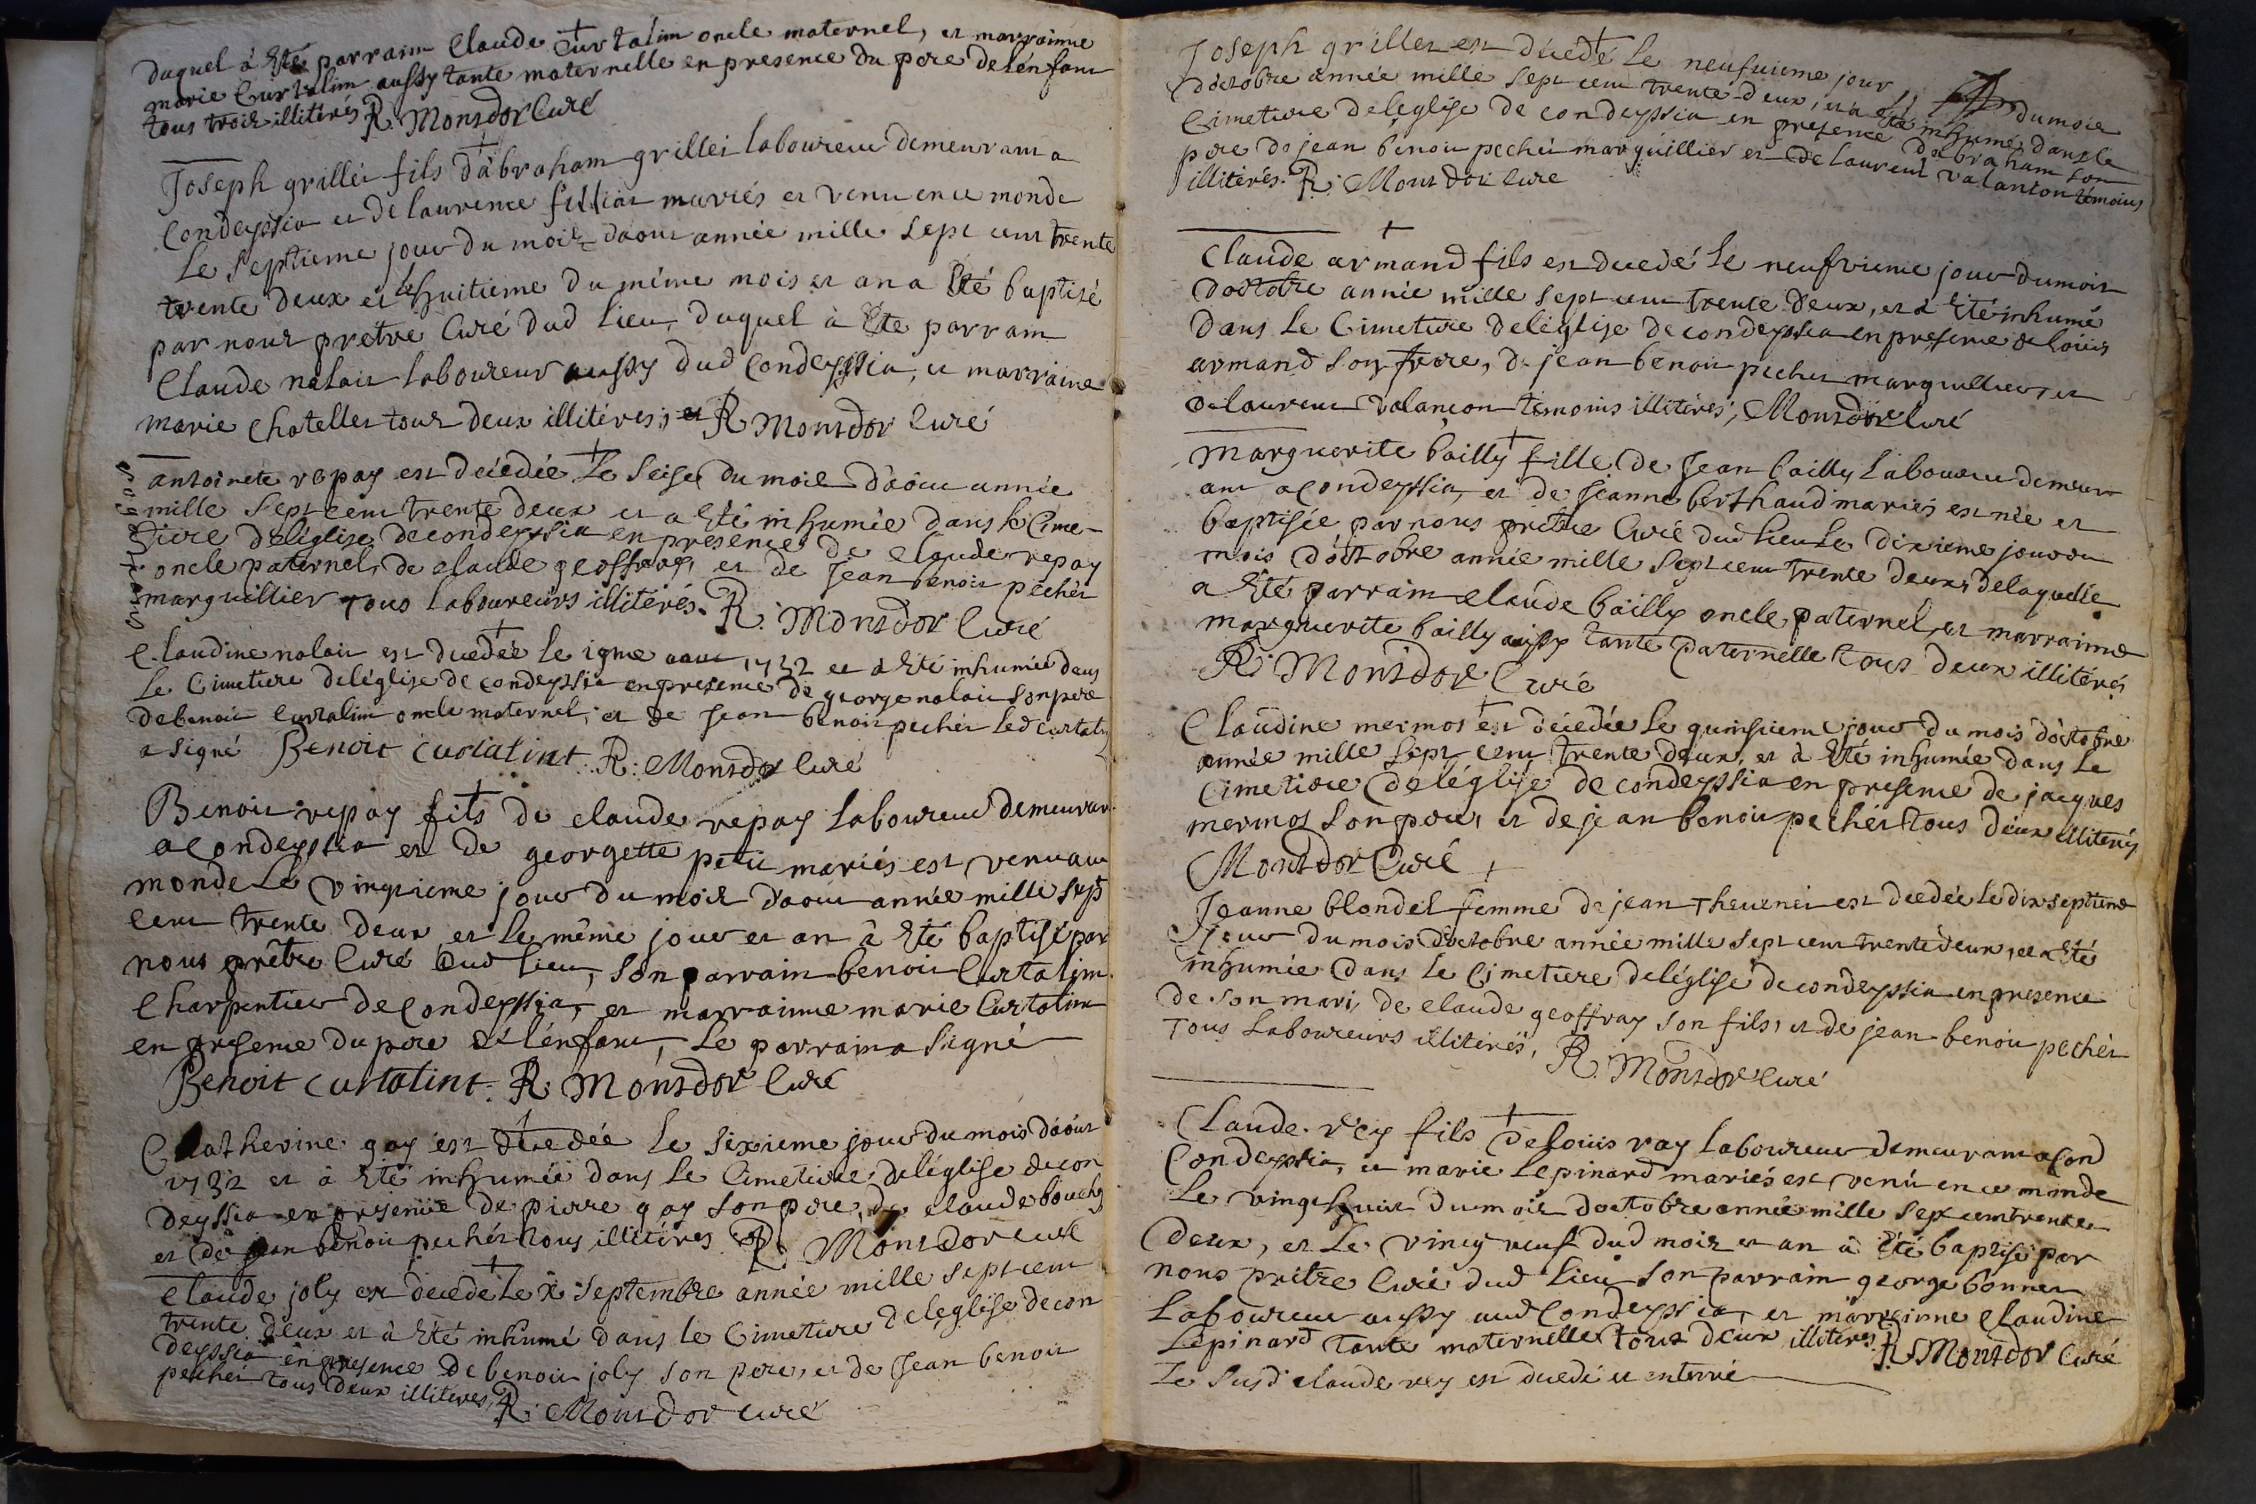 duquel à Eté parrain Claude Curtalim oncle maternel, et marrainne
marie Curtalim aussy tante maternelle en presence du pere de lénfant
tous trois illiterés R. Monsdor Curé
Joseph grillet fils dábraham grillet laboureur demeurant a
Condeyssia et de laurence fillion mariés est venu en ce monde
Le septieme jour du mois daout année mille sept cent trente
trente deux et le huitieme du même mois et an a Eté baptisé
par nous pretre Curé dud lieu, duquel à Eté parrain
Claude nalait laboureur aussy dud Condeyssia, et marraine
marie Chatellet tous deux illitéres; et R Monsdor Curé
antoinete repay est décedée Le Seise du mois d'aôut année
mille Sept cent trente deux et a Eté inhumée dans le Cime-
tiere deléglise decondeyssia en presence de claude repay
oncle paternel, de claude geoffray, et de Jean benoit pechér
marguillier tous laboureurs illitérés. R. Monsdor Curé
Claudine nalait est decedée le 19me aout 1732 et à Eté inhumée dans
Le Cimetiere deléglise de condeyssia en presence de george nalait son pere
de benoit curtalim oncle maternel, et de Jean benoit pechér led curtalim
a signé Benoit Curtalint. R. Monsdor Curé
Benoit repay fils de claude repay laboureur demeurant
a Condeyssia et de georgette petit mariés est venu au
monde Le vingtieme jour du mois daout année mille sept
cent trente deux et le même jour et an à Eté baptisé par
nous prêtre Curé dud lieu, son parrain benoit Curtalim
Charpentier de Condeyssia, et marrainne marie Curtalim
en presence du pere de l'enfant, Le parrain a signé
Benoit Curtalint. R. Monsdor Curé
Catherine gay est décedée Le sixieme jour du mois d'aôut
1732 et à Eté inhumée dans Le Cimetiere deléglise decon
deyssia en presence de pierre gay son pere, de claude bouchy
et de jean benoit pechér tous illitéres R. Monsdor Curé
Claude joly est decedé Le x Septembre année mille sept cent
trente deux et à Eté inhumé dans le Cimetiere deleglise decon
deyssia en presence de benoit joly son pere, et de Jean benoit
pechér tous deux illiteres, R. Monsdor curé
Joseph grillet est décedé Le neufuieme jour du mois
d'octobre année mille sept cent trente deux, et a eté inhumé dans le
Cimetiere deleglise de condeyssia en presence dabraham son
pere de jean bénoit pechér marguillier et de laurent valanson témoins
illitérés. R. Monsdor Curé
Claude armand fils est decedé Le neufvieme jour dumois
doctobre année mille sept cent trente deux, et à Eté inhumé
dans Le Cimetiere deléglise de condeyssia en presence de loüis
armand son frere, de jean benoit pecher marguillier, et
de laurent valançon temoins illitéres; Monsdor Curé
marguerite bailly fille de Jean bailly Laboureur demeur
ant a Condeyssia, et de Jeanne berthaud mariés est née et
baptisée par nous prêtre Curé dud lieu le dixieme jour du
mois d'octobre année mille sept cent trente deux, delaquelle
a Eté parrain claude bailly oncle paternel, et marrainne
marguerite bailly aussy tante paternelle tous deux illitérés
R. Monsdor Curé
Claudine mermos est décedée le quinsieme jour du mois d'octobre
année mille sept cent trente deux, et à Eté inhumée dans Le
Cimetiere deléglise de condeyssia en presence de jacques
mermos son pere, et de jean benoit pechér tous deux illiterés
Monsdor Curé
Jeanne blondel femme de jean Thevenet est decedée le dix septieme
jour du mois d'octobre année mille sept cent trente deux, et a Eté
inhumée dans Le Cimetiere deléglise de condeyssia en presence
de son mari, de claude geoffray son fils, et de jean benoit pechér
Tous Laboureurs illitérés, R. Monsdor Curé
Claude rey fils de loüis ray laboureur demeurant a Cond
Condeyssia, et marie Lepinard mariés est venu en ce monde
Le vingt huit du mois doctobre année mille sept cent trente
deux, et Le vingt neuf dud mois et an à Eté baptisé par
nous prêtre Curé dud lieu son parrain george bonnet
Laboureur aussy aud Condeyssia, et marrainne Claudine
Lepinard Tante maternelle tous deux illiteres, R. Monsdor Curé
Le susd claude rey est decedé et enterré